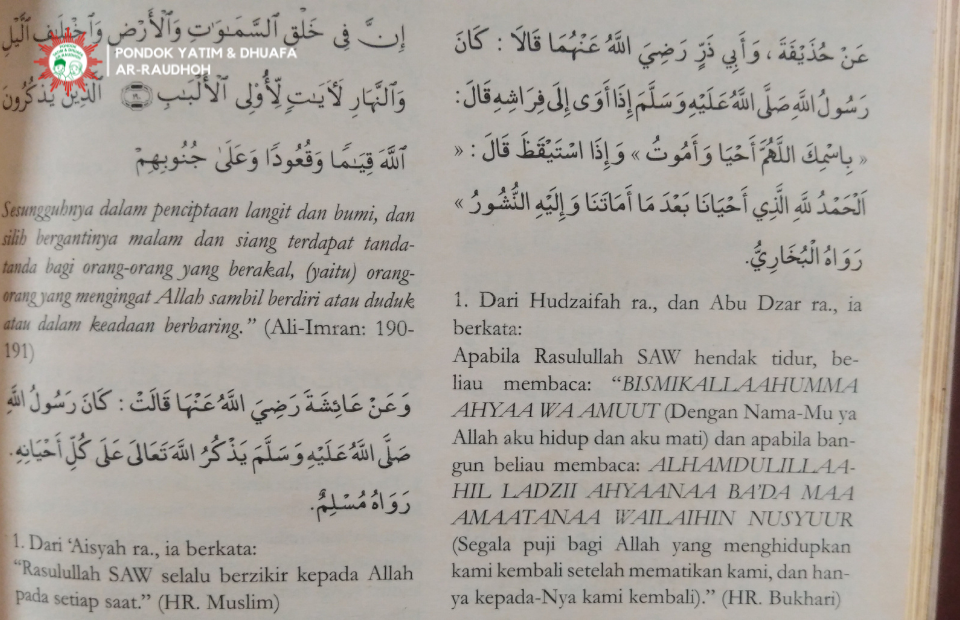 PONDOK YATIM & DHUAFA
AR-RAUDHOH
إِنَّ فِي خَلْقِ ٱلسَّمَـٰوَٰتِ وَٱلْأَرْضِ وَٱخْتِلَـٰفِ ٱلَّيْلِ
وَٱلنَّهَارِ لَـَٔايَـٰتٍ لِّأُو۟لِى ٱلْأَلْبَـٰبِ ۝ ٱلَّذِينَ يَذْكُرُونَ
ٱللَّهَ قِيَـٰمًا وَقُعُودًا وَعَلَىٰ جُنُوبِهِمْ
Sesungguhnya dalam penciptaan langit dan bumi, dan
silih bergantinya malam dan siang terdapat tanda-
tanda bagi orang-orang yang berakal, (yaitu) orang-
orang yang mengingat Allah sambil berdiri atau duduk
atau dalam keadaan berbaring.” (Ali-Imran: 190-
191)
وَعَنْ عَائِشَةَ رَضِيَ اللَّهُ عَنْهَا قَالَتْ : كَانَ رَسُولُ اللَّهِ
صَلَّى اللَّهُ عَلَيْهِ وَسَلَّمَ يَذْكُرُ اللَّهَ تَعَالَى عَلَى كُلِّ أَحْيَانِهِ.
رَوَاهُ مُسْلِمٌ.
1. Dari ‘Aisyah ra., ia berkata:
“Rasulullah SAW selalu berzikir kepada Allah
pada setiap saat.” (HR. Muslim)
عَنْ حُذَيْفَةَ ، وَأَبِي ذَرٍّ رَضِيَ اللَّهُ عَنْهُمَا قَالَا : كَانَ
رَسُولُ اللَّهِ صَلَّى اللَّهُ عَلَيْهِ وَسَلَّمَ إِذَا أَوَى إِلَى فِرَاشِهِ قَالَ:
« بِاسْمِكَ اللَّهُمَّ أَحْيَا وَأَمُوتُ » وَإِذَا اسْتَيْقَظَ قَالَ : «
اَلْحَمْدُ لِلَّهِ الَّذِي أَحْيَانَا بَعْدَ مَا أَمَاتَنَا وَإِلَيْهِ النُّشُورُ »
رَوَاهُ الْبُخَارِيُّ.
1. Dari Hudzaifah ra., dan Abu Dzar ra., ia
berkata:
Apabila Rasulullah SAW hendak tidur, be-
liau membaca: “BISMIKALLAAHUMMA
AHYAA WA AMUUT (Dengan Nama-Mu ya
Allah aku hidup dan aku mati) dan apabila ban-
gun beliau membaca: ALHAMDULILLAA-
HIL LADZII AHYAANAA BA’DA MAA
AMAATANAA WAILAIHIN NUSYUUR
(Segala puji bagi Allah yang menghidupkan
kami kembali setelah mematikan kami, dan han-
ya kepada-Nya kami kembali).” (HR. Bukhari)